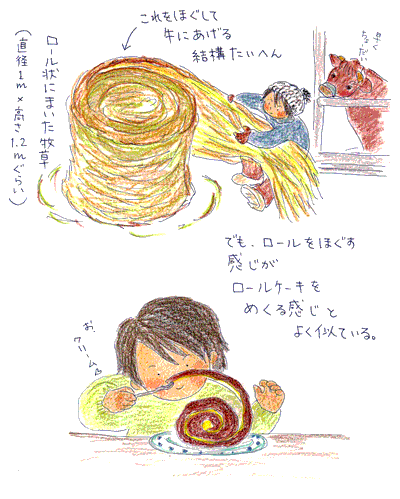 これをほぐして
牛にあげる
結構たいへん
ロール状にまいた牧草
(直径1m×高さ1.2mぐらい)
早く
ちょーだい
でも、ロールをほぐす
感じが
ロールケーキを
めくる感じと
よく似ている。
お、
クリーム